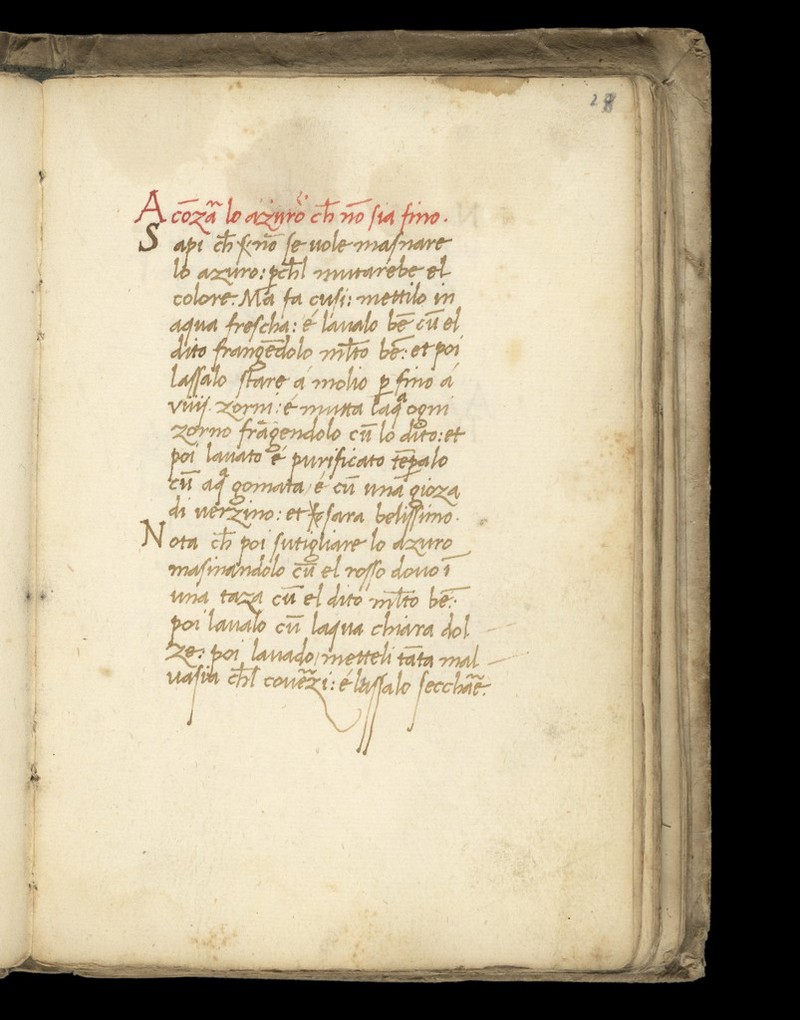 28
A cōzar̄ lo azuro ch̄ nō sia fino.
Sapi ch̄ nō se uole masnare
lo azuro: pch̄l mutarebe el
colore. Ma fa cusi: mettilo in
aqua frescha: é laualo bē cū el
dito frangēdolo ml̄to bē: et poi
lassalo stare á molio p fino á
viiij. zorni: é mutta laqª ogni
zorno frāgendolo cū lo dito: et
poi lauato é purificato tēpalo
cū aqª gomata / é cū una gioza
di verzino: et sara belissimo.
Nota ch̄ poi sutigliare lo azuro
masinandolo cū el rosso douo ī
una taza cū el dito ml̄to bē:
poi laualo cū laqua chiara dol
ze: poi lauado / metteli tāta mal
uasia ch̄l couerzi: é lassalo secchāe.